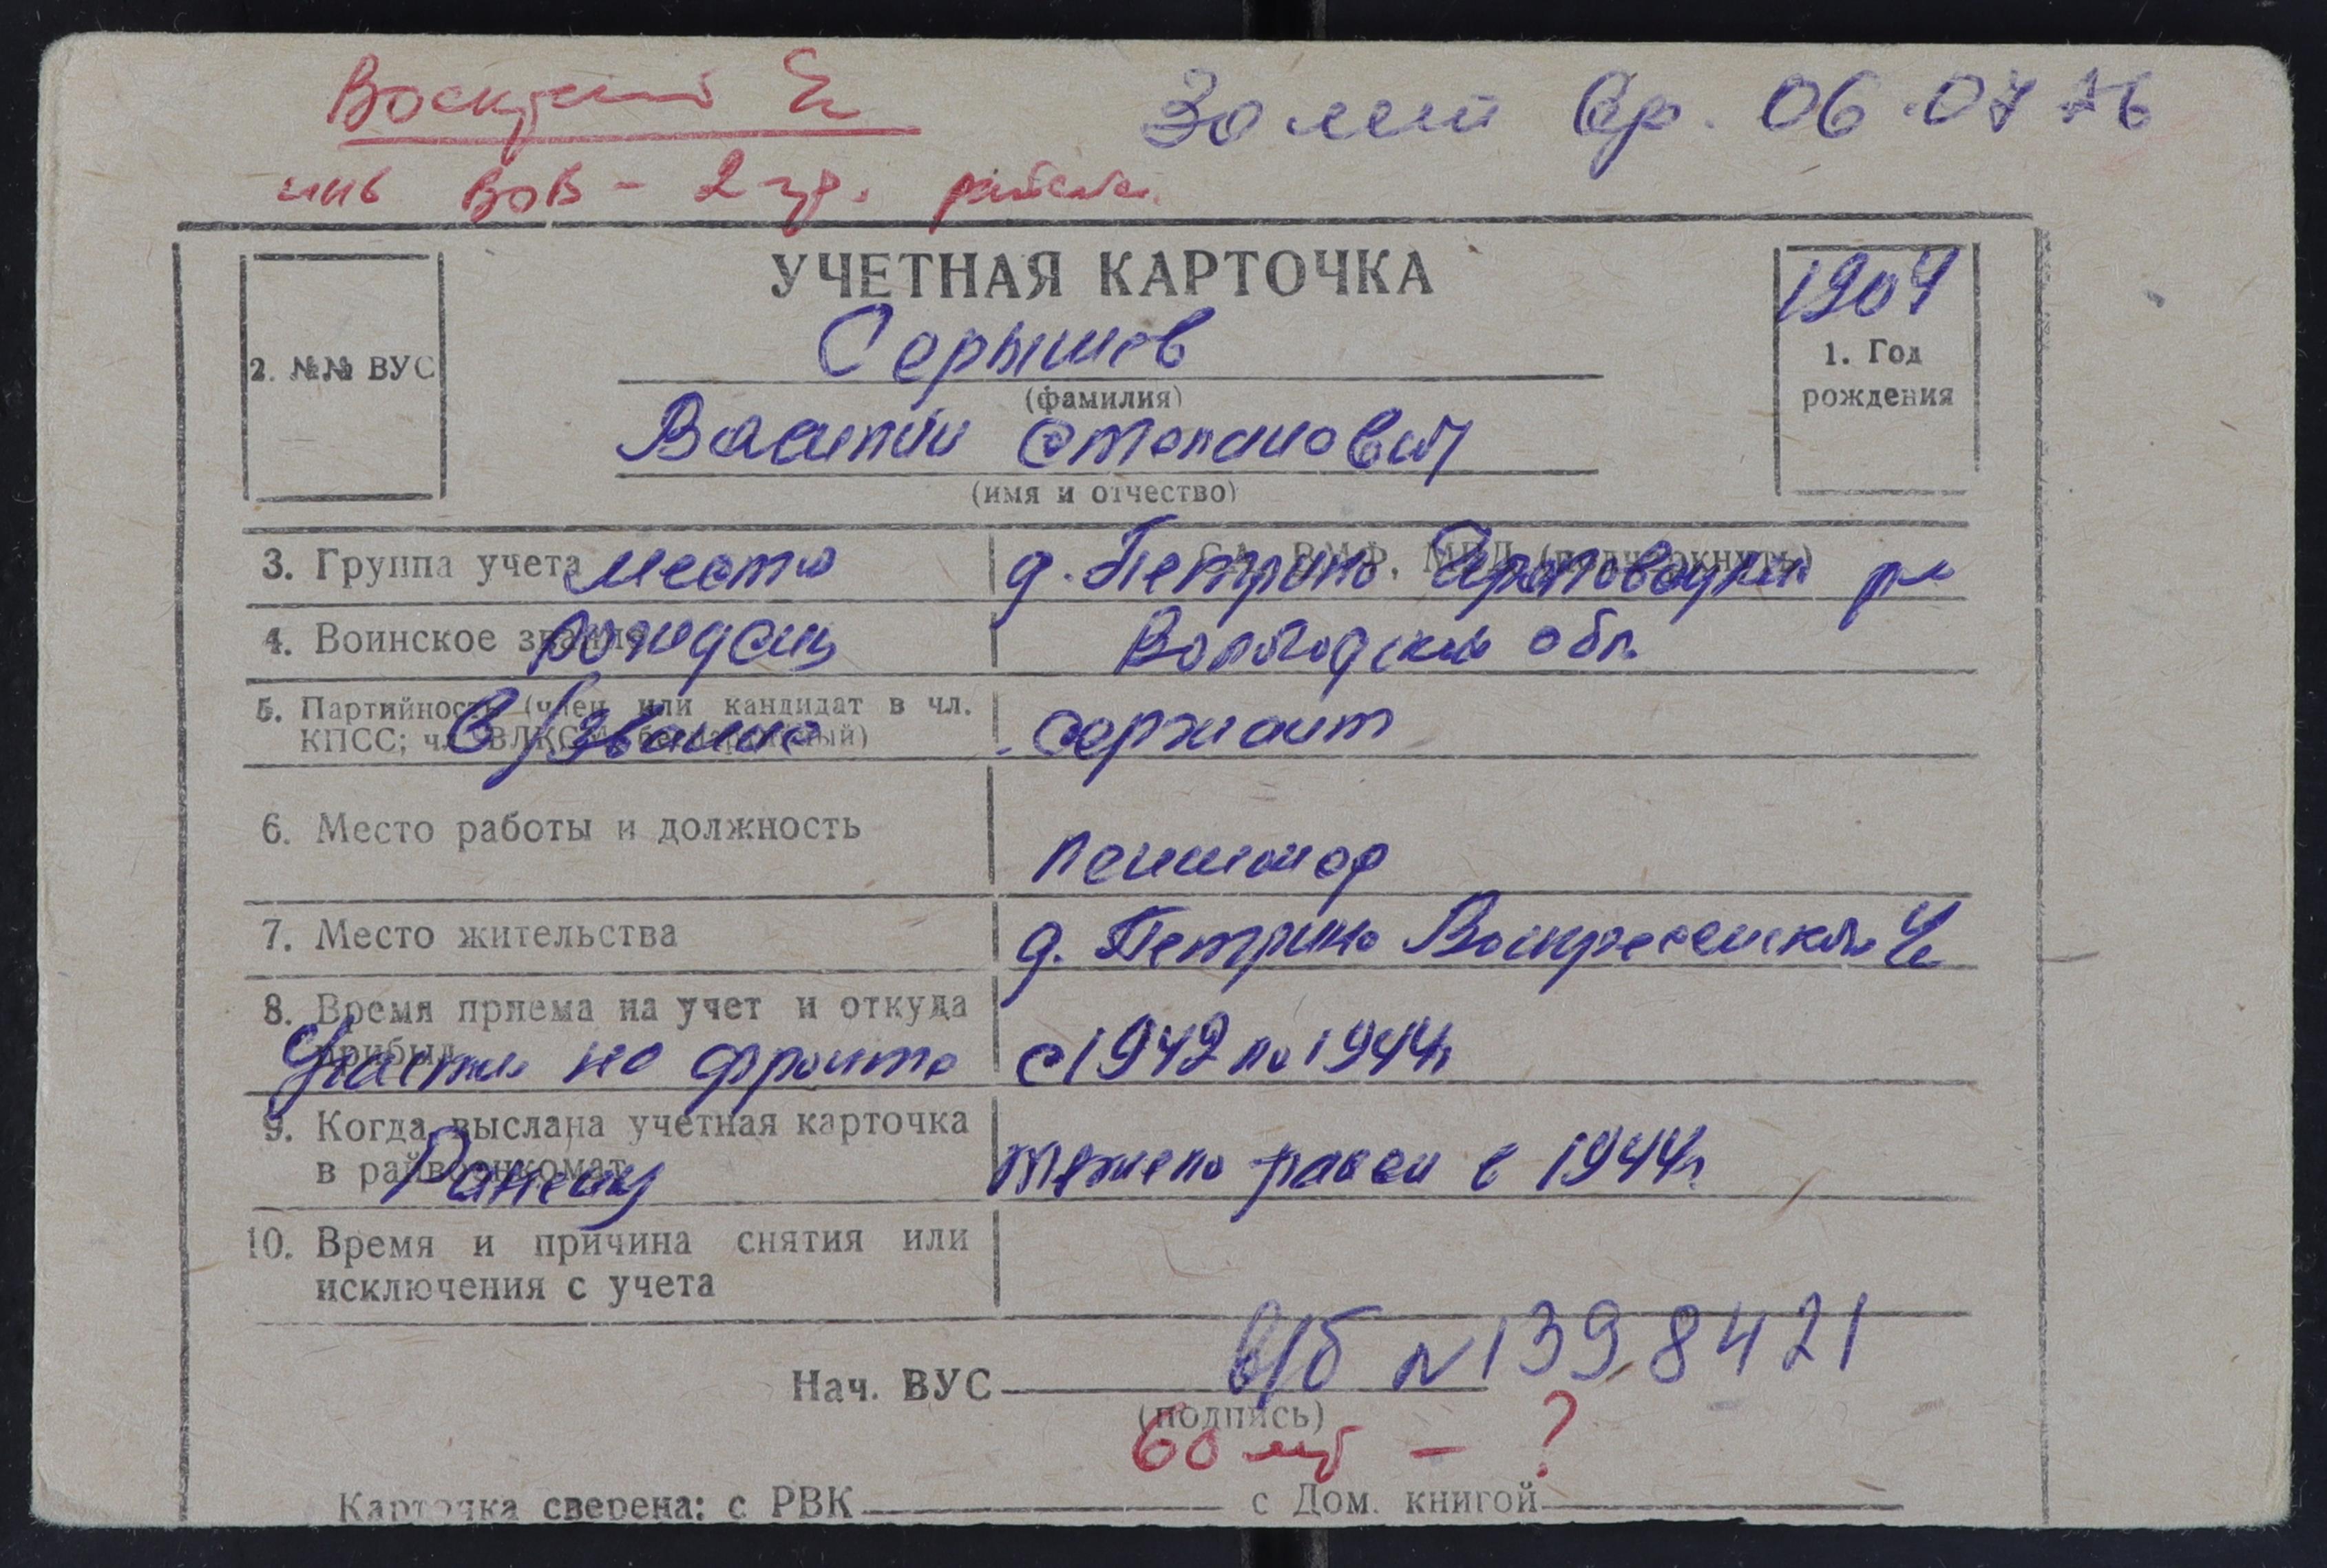 30 лет вр. 06.07.76
инв ВОВ - 2 гр.
УЧЕТНАЯ КАРТОЧКА
1904
1. Год рождения
2. №№ ВУС
Серышев
(фамилия)
Василий Степанович
(имя и отчество)
3. Группа учета место д. Петрино Череповецкий р-н
СА, ВМФ, МВД (подчеркнуть)
4. Воинское звание рожден Вологодской обл.
5. Партийность (член или кандидат в чл. КПСС; чл. ВЛКСМ, беспартийный) в/звание сержант
6. Место работы и должность пенсионер
7. Место жительства д. Петрино Воскресенского
8. Время приема на учет и откуда прибыл
Участи на фронте с 1942 по 1944г
9. Когда выслана учетная карточка
в райвоенкомат Ранени тяжело ранен в 1944г
10. Время и причина снятия или
исключения с учета
в/б N 1398421
Нач. ВУС
(подпись)
60 лет - ?
Карточка сверена: с РВК с Дом. книгой